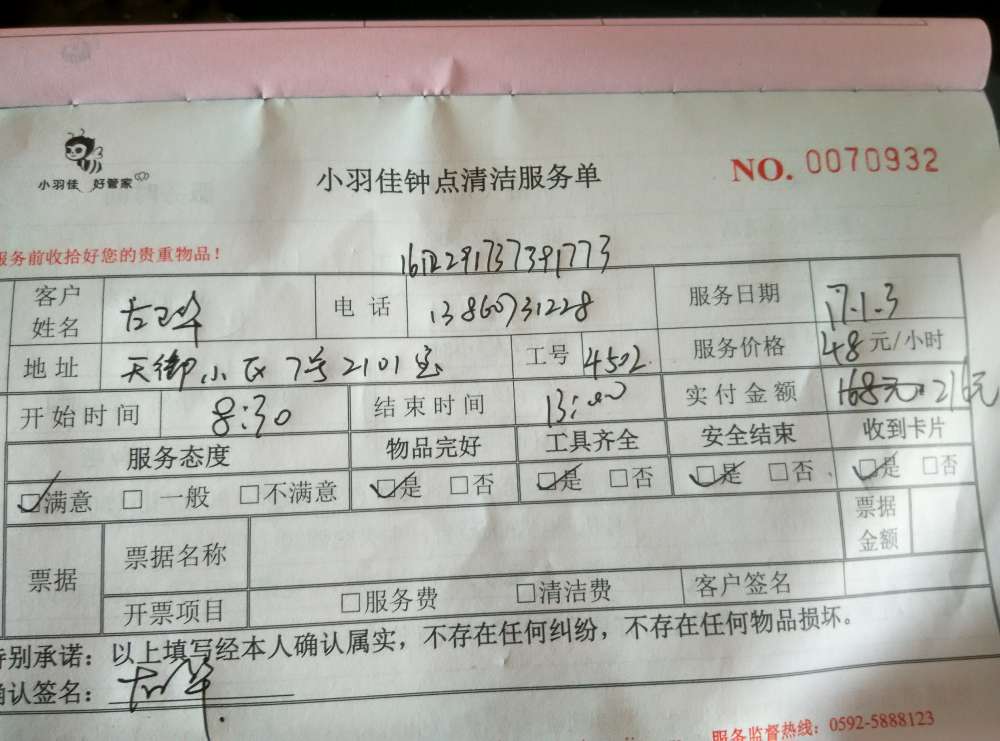 小羽佳 好管家
小羽佳钟点清洁服务单
NO. 0070932
服务前收拾好您的贵重物品！
客户姓名
电话 13860731228
服务日期 17.1.3
地址 天御小区7号2101室
工号 4502
服务价格 48元/小时
开始时间 8:30
结束时间 13:00
实付金额 168元 216元
服务态度 物品完好 工具齐全 安全结束 收到卡片
☑满意 □一般 □不满意 ☑是 □否 ☑是 □否 ☑是 □否 ☑是 □否
票据 票据名称 票据金额
开票项目 □服务费 □清洁费 客户签名
特别承诺：以上填写经本人确认属实，不存在任何纠纷，不存在任何物品损坏。
确认签名：
服务监督热线：0592-5888123